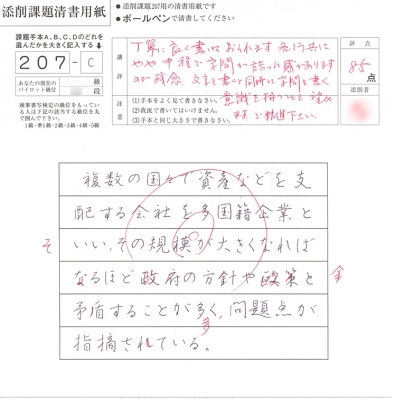 添削課題清書用紙
● 添削課題207用の清書用紙です
● ボールペンで清書してください
課題手本A、B、C、Dのどれを
選んだかを大きく記入する
207-C
あなたの現在の
パイロット級位
級
段
硬筆書写検定の級位をもっている
人は下記の該当する級位を丸
で囲んで下さい。
1級・準1級・2級・3級・4級・5級
講評
丁寧に良く書いておられます 各行共に
やや中程で字間が詰った感があります
のが残念 文字を書くと同時に字間も書く
意識を持つ
ご精進下さい
注意
(1)手本をよく見て書きなさい。
(2)我流で書いてはいけません。
(3)手本と同じ大きさで書きなさい。
評点
85点
添削者
複数の国々で資産などを支
配する会社を多国籍企業と
いい、その規模が大きくなれば
なるほど政府の方針や政策と
矛盾することが多く、問題点が
指摘されている。
そ
多